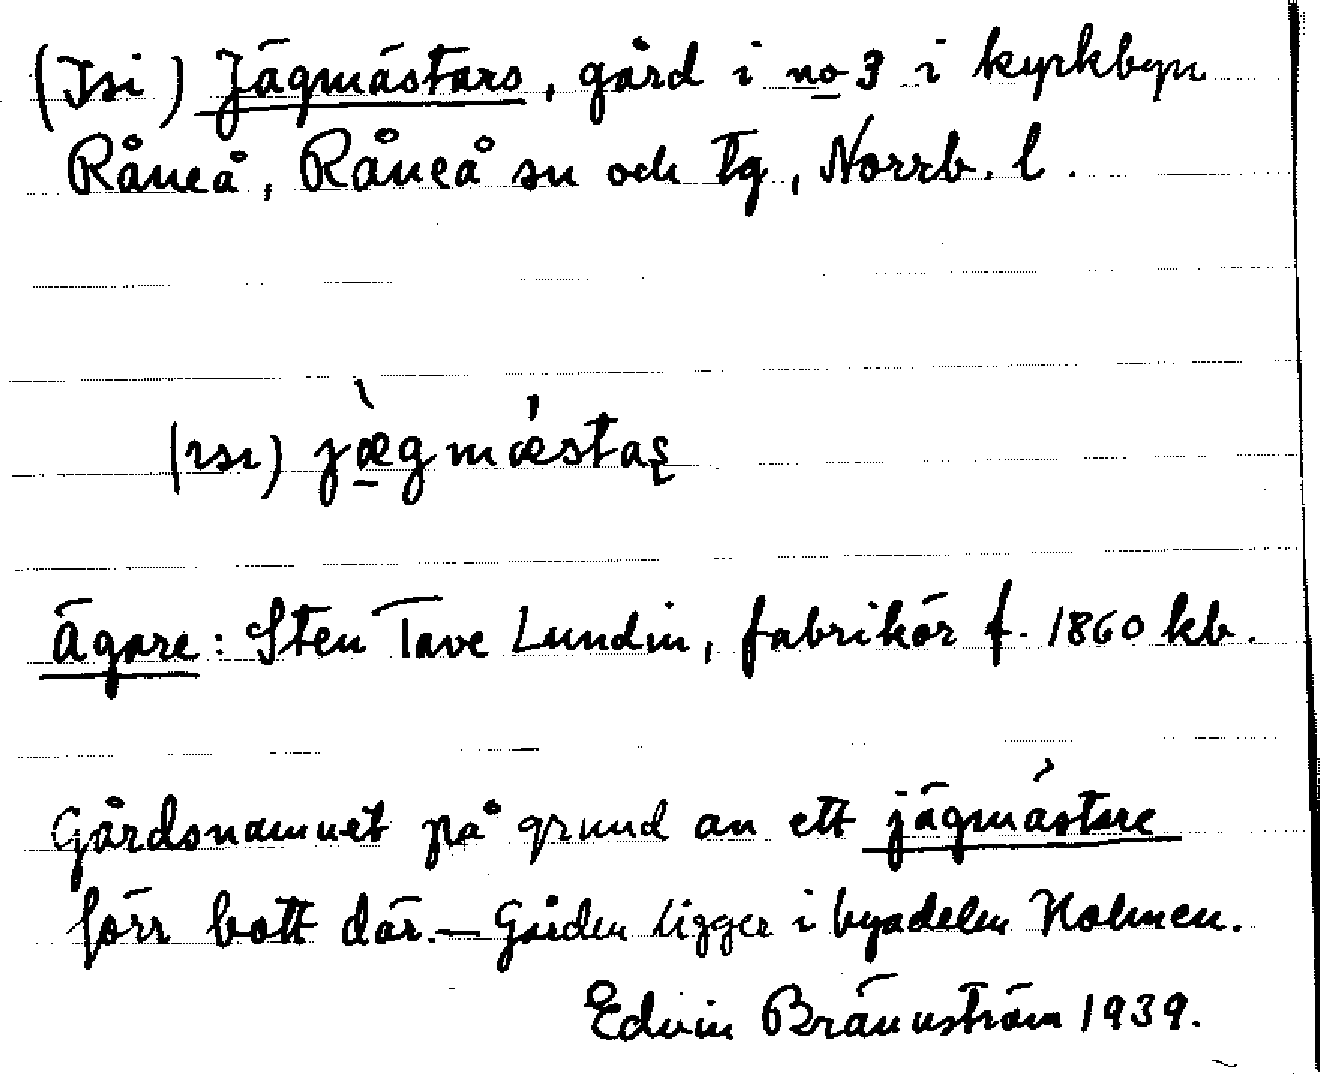 (Isi) Jägmästars, gård i no 3 i kyrkbyn
Råneå, Råneå sn och tg, Norrb. l.
(ısı) jæ̀gmǽstaș
Ägare: Sten Tave Lundin, fabrikör f. 1860 kb.
Gårdsnamnet på grund av ett jägmästare
förr bott där. – Gården ligger i byadelen Holmen.
Edvin Brännström 1939.